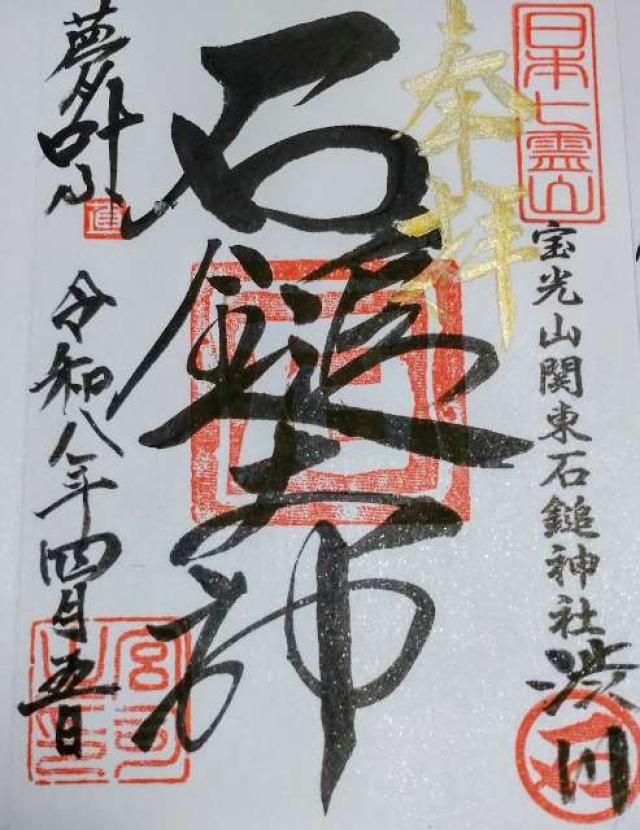 日本七霊山
奉拝
宝光山関東石鎚神社
渋川
石鎚大神
夢叶ふ
令和八年四月五日
宮司之印